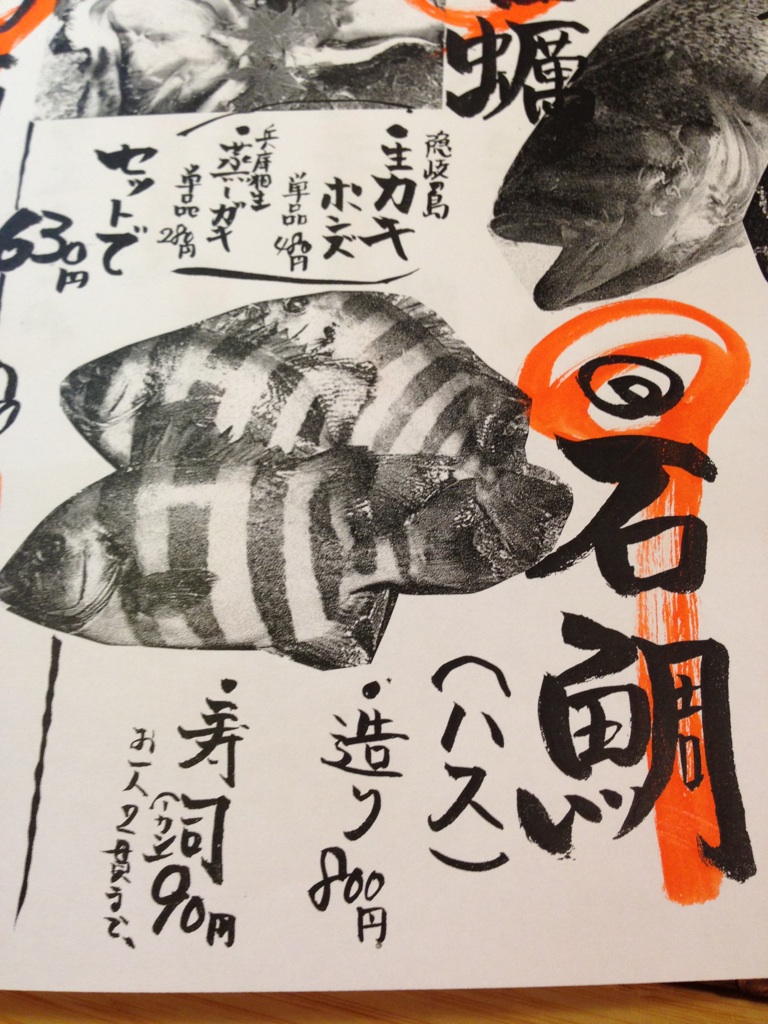 蠣
隠岐の島
・生カキ
ポンズ
単品
480円
兵庫相生
・蒸しガキ
単品
280円
セットで
630円
石鯛
(ハス)
・造り
800円
・寿司
(一カン)
90円
お一人2貫まで、